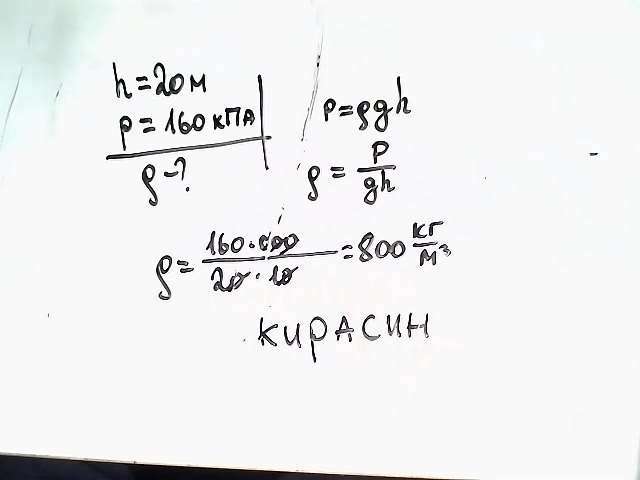 h=20м
p=160кПа
ρ-?
P=ρgh
ρ=P/gh
ρ=160·000/20·10=800 кг/м³
КИРАСИН